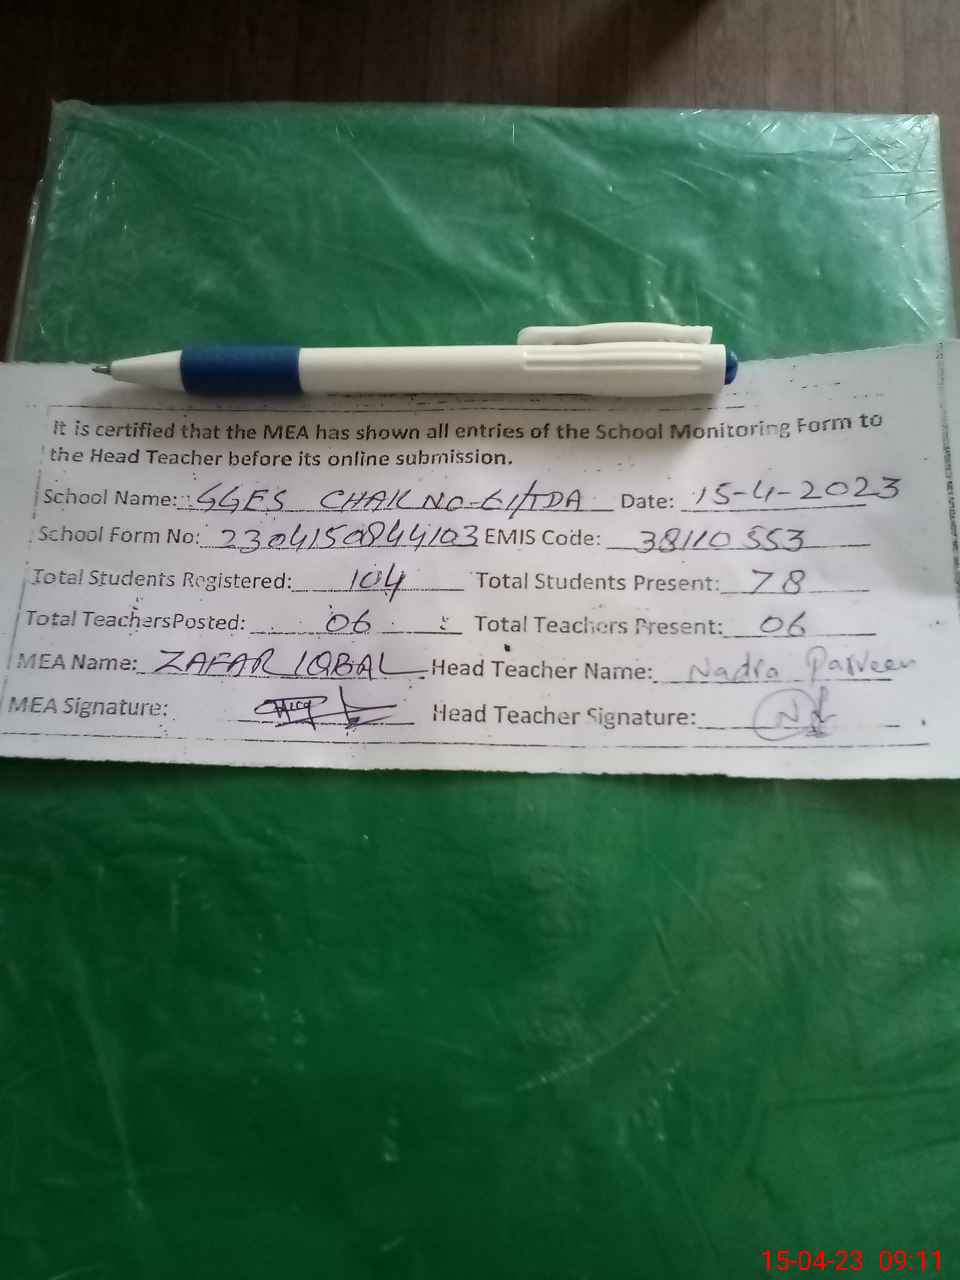 It is certified that the MEA has shown all entries of the School Monitoring Form to
the Head Teacher before its online submission.
School Name: GGES CHAK NO-61/TDA Date: 15-4-2023
School Form No: 2304150844103 EMIS Code: 38110553
Total Students Registered: 104 Total Students Present: 78
Total TeachersPosted: 06 Total Teachers Present: 06
MEA Name: ZAFAR IQBAL Head Teacher Name: Nadra Parveen
MEA Signature: Head Teacher Signature:
15-04-23 09:11